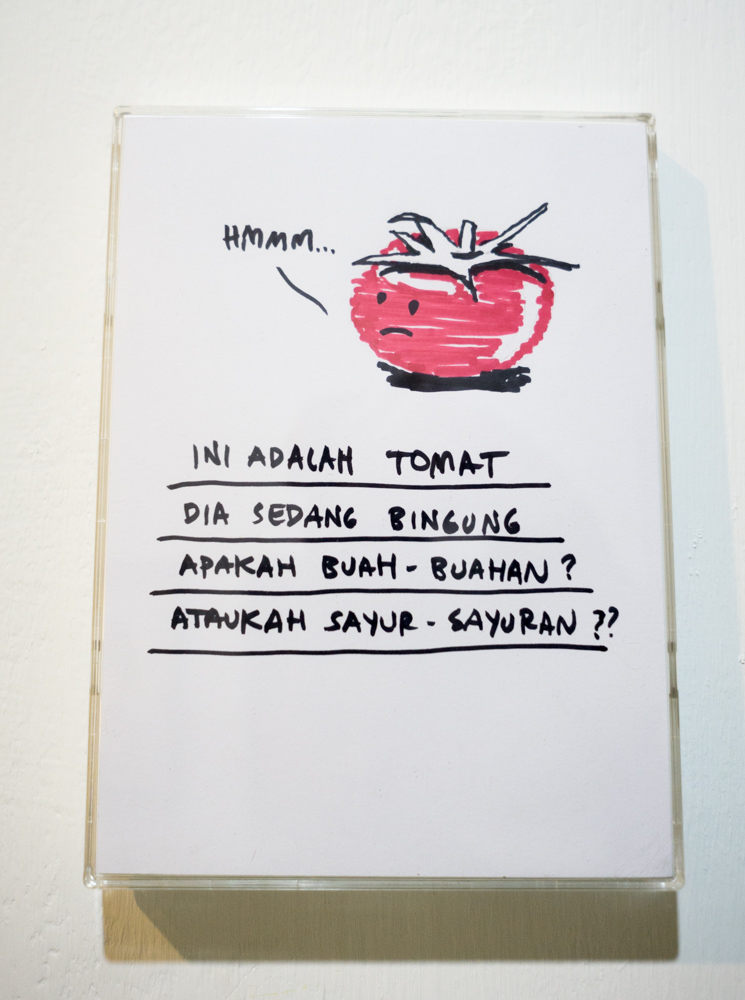 HMMM...
INI ADALAH TOMAT
DIA SEDANG BINGUNG
APAKAH BUAH - BUAHAN ?
ATAUKAH SAYUR - SAYURAN ??